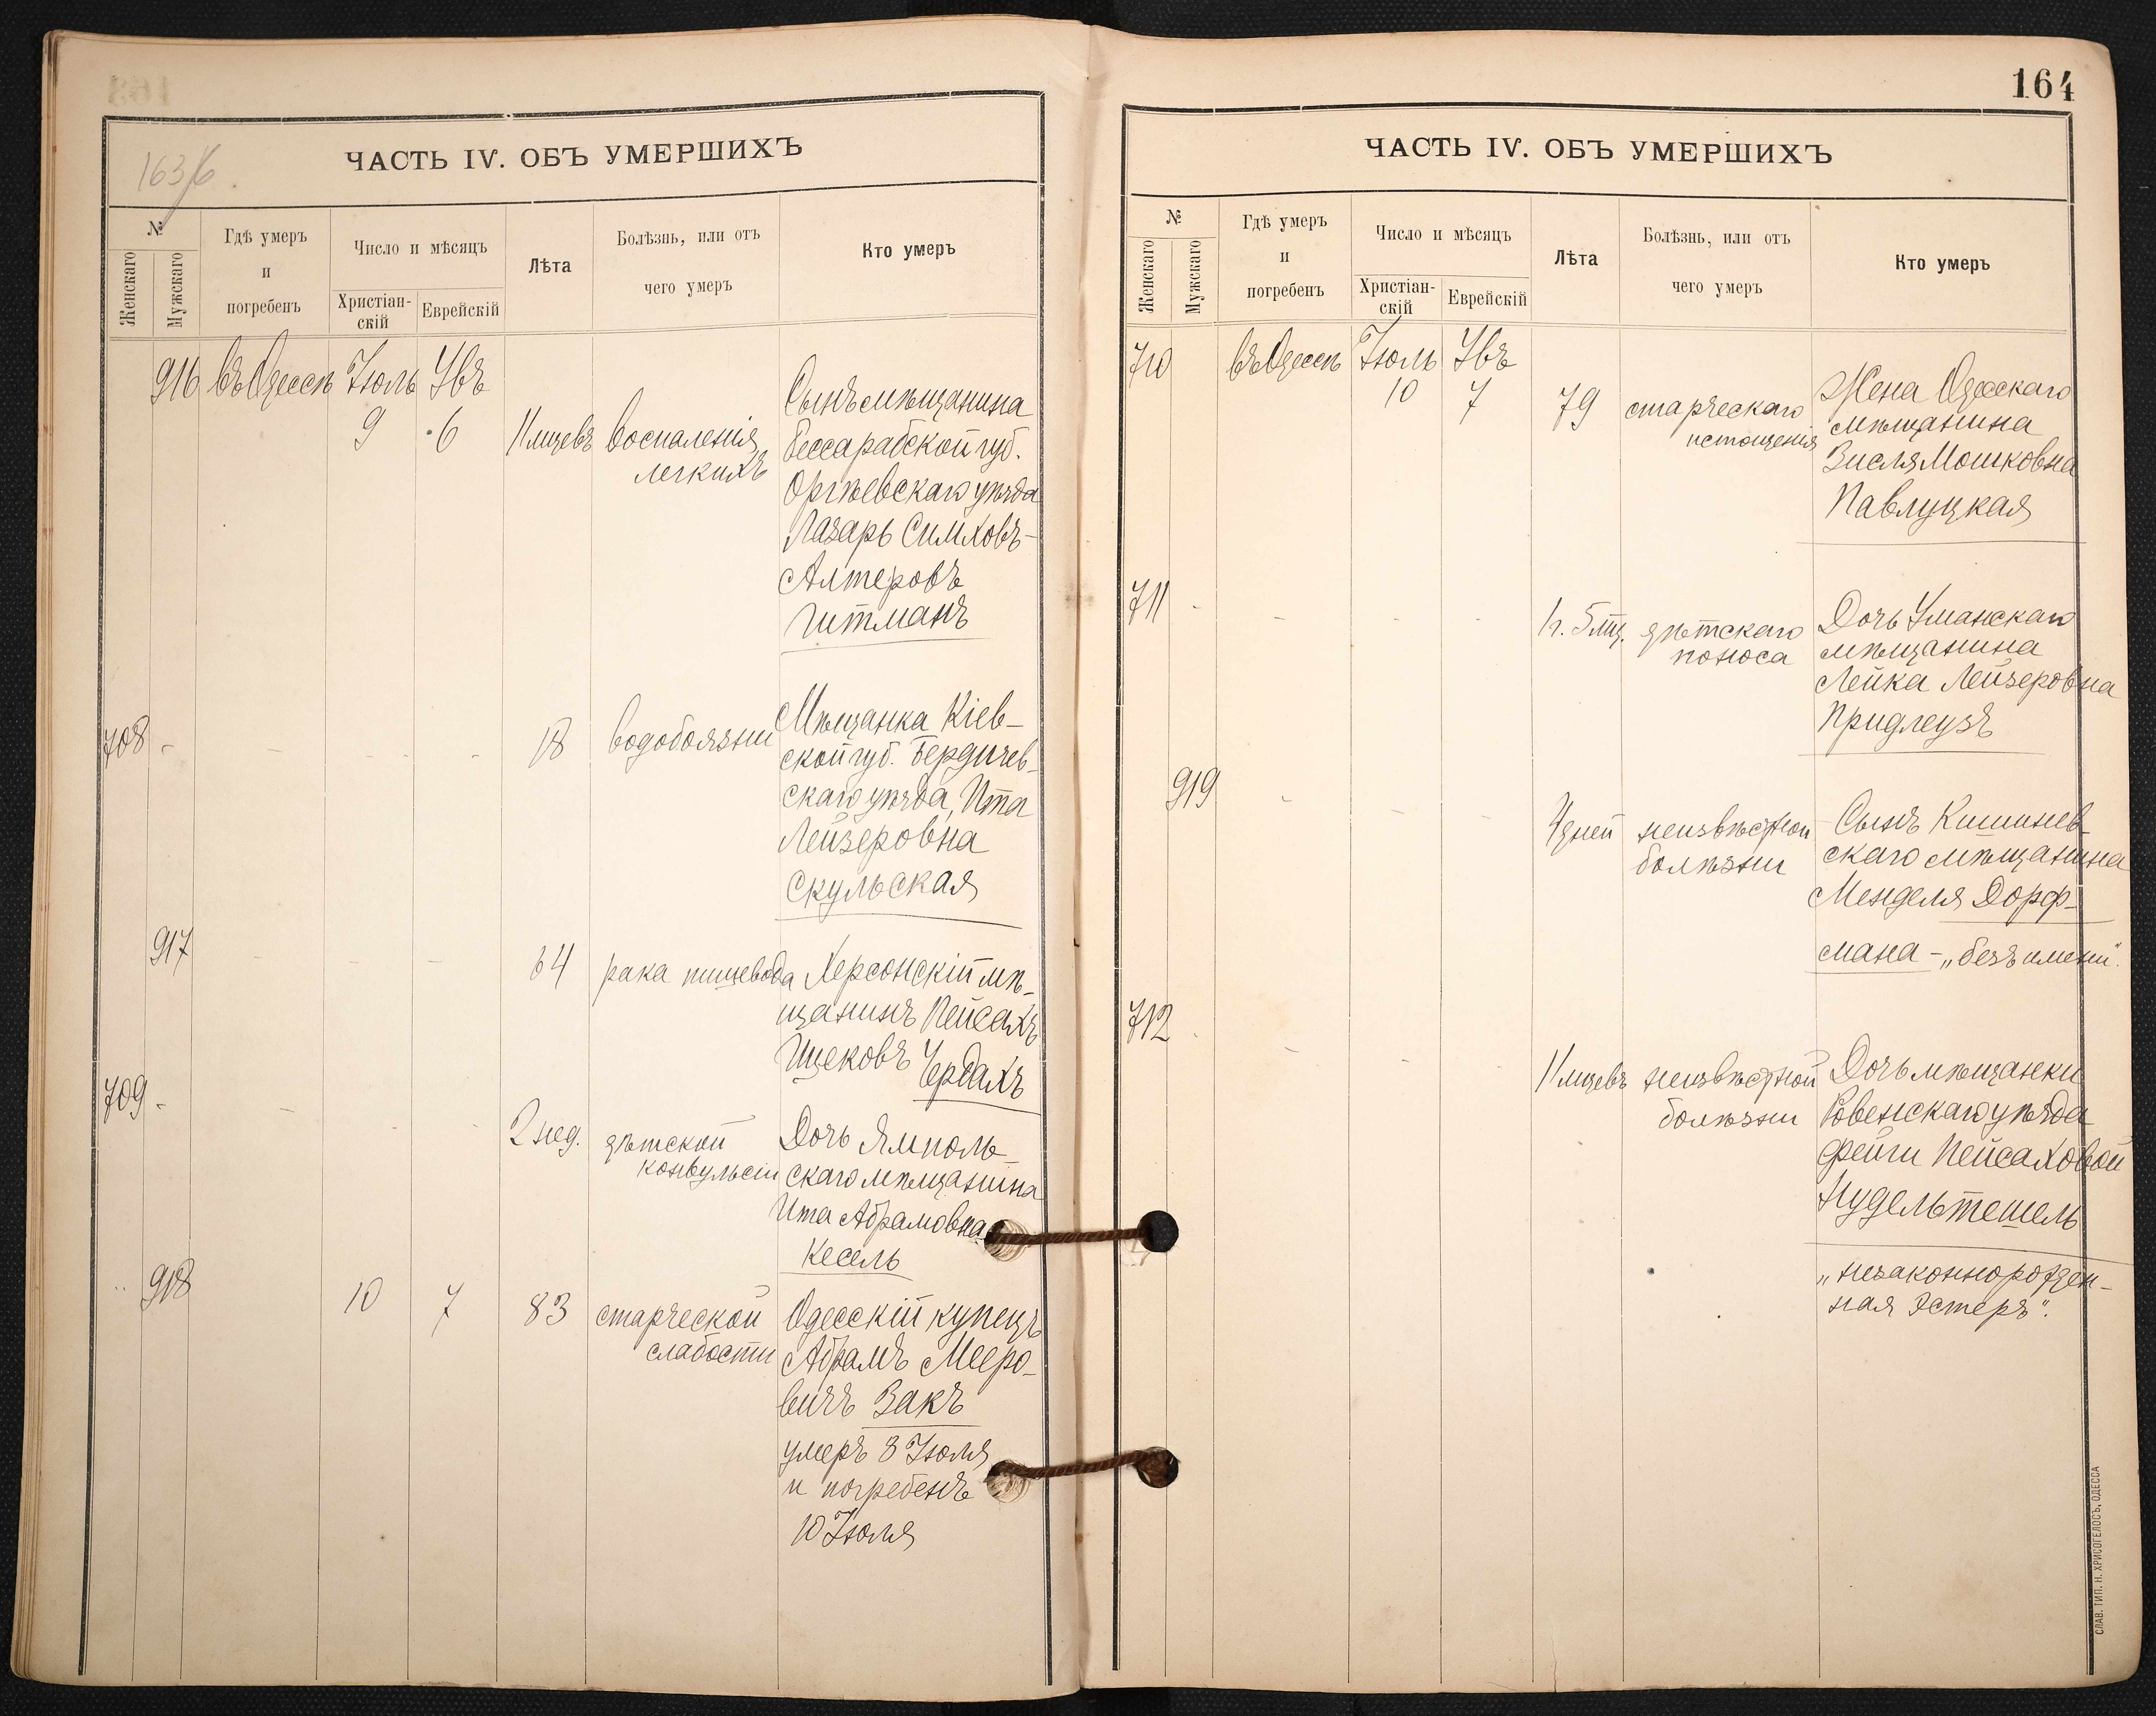 163/б.
ЧАСТЬ IV. ОБЪ УМЕРШИХЪ
№
Женскаго
Мужскаго
Гдѣ умеръ
и
погребенъ
Число и мѣсяцъ
Христіан-
скій
Еврейскій
Лѣта
Болѣзнь, или отъ
чего умеръ
Кто умеръ
916 въ Одессѣ Іюль Увъ
9 6 11 мцевъ воспаленія
легкихъ
Сынъ мѣщанина
Бессарабской губ.
Оргѣевскаго уѣзда
Лазарь Симховъ-
Алтеровъ
Гитманъ
708 - - - - - 18 водобоязни
Мѣщанка Кіев-
ской губ. Бердичев-
скаго уѣзда, Ита
Лейзеровна
Скульская
917 - - - 64 рака пищевода
Херсонскій мѣ-
щанинъ Пейсахъ
Ицековъ Чердахъ
709 - - - - 2 нед. дѣтской
конвульсіи
Дочь Ямполь-
скаго мѣщанина
Ита Абрамовна
Кесель
918 10 7 83 старческой
слабости
Одесскій купецъ
Абрамъ Мееро-
вичъ Закъ
умеръ 8 Іюля
и погребенъ
10 Іюля
164
ЧАСТЬ IV. ОБЪ УМЕРШИХЪ
№
Женскаго
Мужскаго
Гдѣ умеръ
и
погребенъ
Число и мѣсяцъ
Христіан-
скій
Еврейскій
Лѣта
Болѣзнь, или отъ
чего умеръ
Кто умеръ
710 въ Одессѣ Іюль Увъ
10 7 79 старческаго
истощенія
Жена Одесскаго
мѣщанина
Зисля Мошковна
Павлуцкая
711 - - - - 1 г. 5 мц. дѣтскаго
поноса
Дочь Уманскаго
мѣщанина
Лейка Лейзеровна
Придлеузъ
919 - - - 4 дней неизвѣстной
болѣзни
Сынъ Кишинев-
скаго мѣщанина
Менделя Дорф-
мана - „безъ имени".
712 - - - - 11 мцевъ неизвѣстной
болѣзни
Дочь мѣщанки
Ровенскаго уѣзда
Фейги Пейсаховой
Нудельтешель
„незаконнорожден-
ная Эстеръ".
СЛАВ. ТИП. Н. ХРИСОГЕЛОСЪ, ОДЕССА